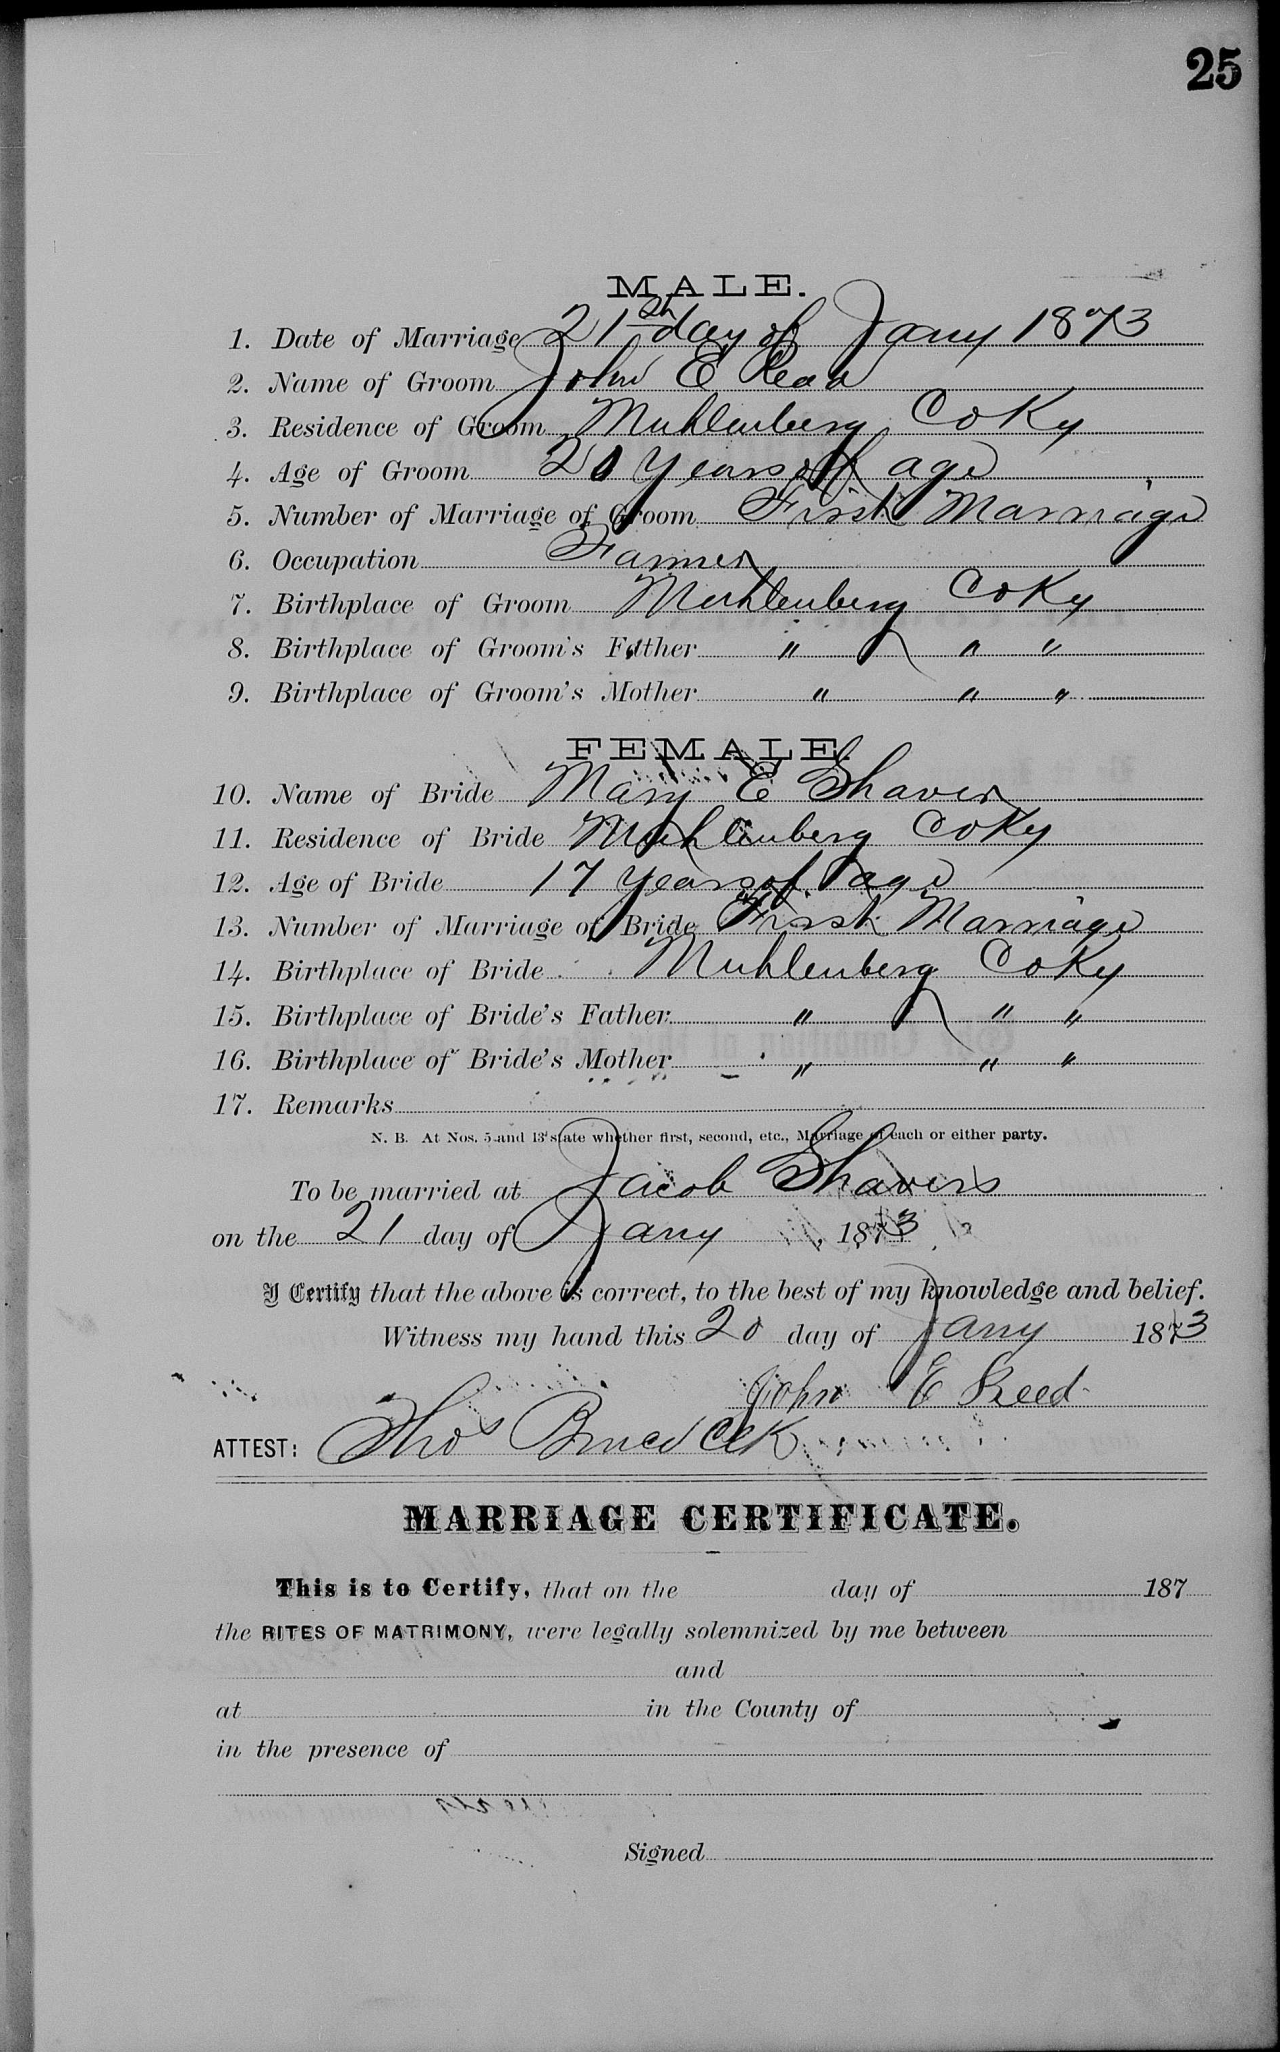 25
MALE.
1. Date of Marriage 21st day of Jany 1873
2. Name of Groom John E Read
3. Residence of Groom Muhlenberg Co Ky
4. Age of Groom 20 years of age
5. Number of Marriage of Groom First Marriage
6. Occupation Farmer
7. Birthplace of Groom Muhlenberg Co Ky
8. Birthplace of Groom's Father " " "
9. Birthplace of Groom's Mother " " "
FEMALE.
10. Name of Bride Mary E Shaver
11. Residence of Bride Muhlenberg Co Ky
12. Age of Bride 17 years of age
13. Number of Marriage of Bride First Marriage
14. Birthplace of Bride Muhlenberg Co Ky
15. Birthplace of Bride's Father " " "
16. Birthplace of Bride's Mother " " "
17. Remarks
N. B. At Nos. 5 and 13 state whether first, second, etc., Marriage of each or either party.
To be married at Jacob Shavers
on the 21 day of Jany, 1873
I Certify that the above is correct, to the best of my knowledge and belief.
Witness my hand this 20 day of Jany 1873
John E Reed
ATTEST: Thos Bruce Clk
MARRIAGE CERTIFICATE.
This is to Certify, that on the day of 187
the RITES OF MATRIMONY, were legally solemnized by me between
and
at in the County of
in the presence of
Signed